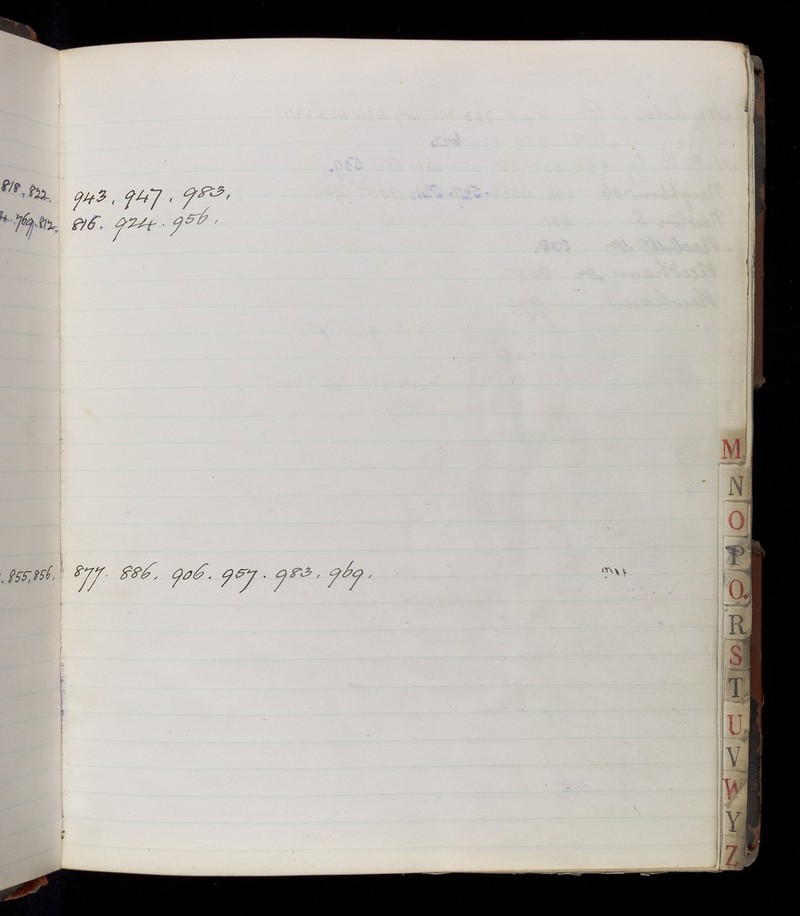 818, 822. 943, 947, 983,
769, 812, 816. 924. 956.
855, 856, 877. 886, 906. 957. 983. 969.
M
N
O
P
Q
R
S
T
U
V
W
Y
Z